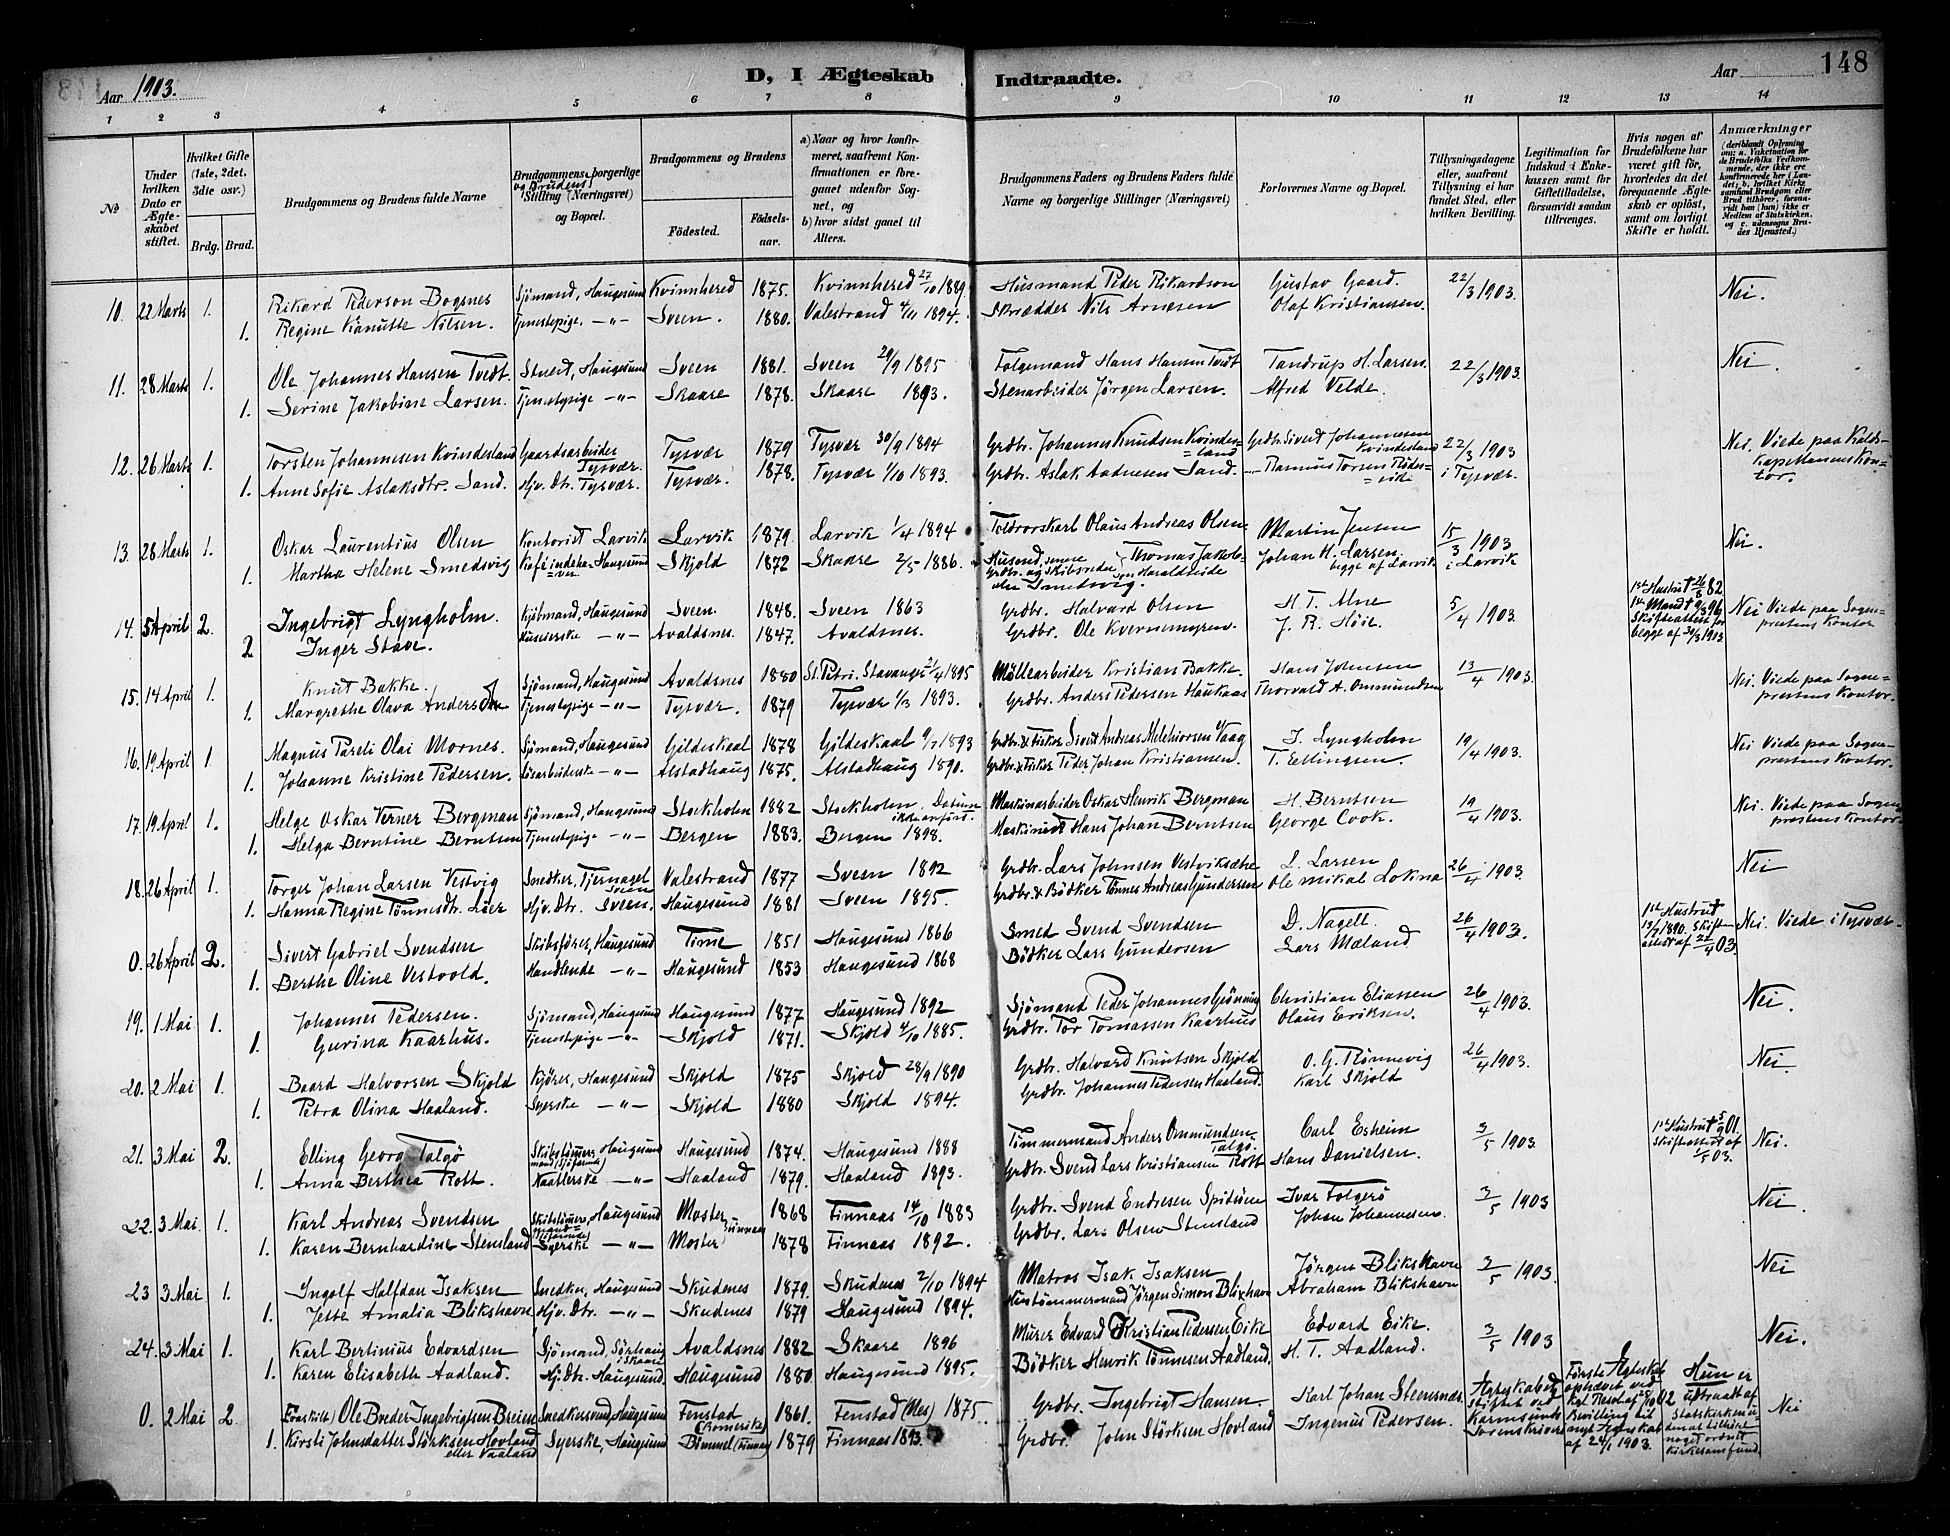 Aar 1903.
D, I Ægteskab Indtraadte.
Aar
148
1 2 3 4 5 6 7 8 9 10 11 12 13 14
№
Under hvilken Dato er Ægteskabet stiftet.
Hvilket Gifte (1ste, 2det, 3die osv.)
Brdg. Brud.
Brudgommens og Brudens fulde Navne
Brudgommens og Brudens borgerlige Stilling (Næringsvei) og Bopæl.
Brudgommens og Brudens
Fødested. Fødsels-aar.
a) Naar og hvor konfirmeret, saafremt Konfirmationen er foregaaet udenfor Sognet, og b) hvor sidst gaaet til Alters.
Brudgommens Faders og Brudens Faders fulde Navne og borgerlige Stillinger (Næringsvei)
Forlovernes Navne og Bopæl.
Tillysningsdagene eller, saafremt Tillysning ei har fundet Sted, efter hvilken Bevilling.
Legitimation for Indskud i Enkekassen samt for Giftetilladelse, forsaavidt saadan tiltrænges.
Hvis nogen af Brudefolkene har været gift før, hvorledes da det foregaaende Ægteskab er opløst, samt om lovligt Skifte er holdt.
Anmærkninger (deriblandt Oplysning om: a. Vakcination for de Brudefolks Vedkommende, der ikke ere konfirmerede her i Landet; b. hvilket Kirkesamfund Brudgom eller Brud tilhører, forsaavidt han (hun) ikke er Medlem af Statskirken, og c. udensogns Brudes Hjemsted.)
10. 22 Marts 1. Rikard Pederson Bogsnes Sjømand, Haugesund Kvinnhered 1875. Kvinnhered 27/10 1889 Husmand Peder Rikardson Gustav Gaard. 22/3 1903. Nei.
1. Regine Kanutte Nilsen. Tjenestepige -"- Sveen. 1880. Valestrand 4/11 1894. Skrædder Nils Arnesen Olaf Kristiansen.
11. 28 Marts 1. Ole Johannes Hansen Tvedt. Stuert, Haugesund Sveen 1881. Sveen 29/9 1895 Folgemand Hans Hansen Tvedt Tandrup H. Larsen. 22/3 1903. Nei.
1. Serine Jakobine Larsen. Tjenestepige -"- Skaare 1878. Skaare 1893. Stenarbeider Jörgen Larsen. Alfred Velde.
12. 26 Marts 1. Torsten Johannesen Kvindesland Gaardsarbeider Tysvær Tysvær 1879 Tysvær 30/9 1894 Grdbr. Johannes Knudsen Kvindesland Grdbr. Sivert Johannesen Kvindesland 22/3 1903 Nei. Viede paa Kaldskapellanens Kontor.
1. Anne Sofie Aslaksdtr. Sand. Hjv. Dtr. Tysvær. Tysvær. 1878. Tysvær 1/10 1893. Grdbr. Aslak Aadnesen Sand. Rasmus Torsen i Tysvær.
13. 28 Marts 1. Oskar Laurentius Olsen Kontorist Larvik Larvik 1879. Larvik 1/4 1894 Toldrorskarl Olaus Andreas Olsen Martin Jensen 15/3 1903 i Larvik Nei.
1. Martha Helene Smedsvig Kafé Haugesund Skjold 1872 Skaare 2/5 1886. Husmd, senere Grdbr. og Skibsreder Thomas Jakobsen Haraldseide eller Smedsvig. Johan H. Larsen begge af Larvik
14. 5 April 2. Ingebrigt Lyngholm. Kjøbmand, Haugesund Sveen. 1848. Sveen 1863 Grdbr. Halvard Olsen H. T. Alne 5/4 1903 1st Hustru † 26/5 82 1st Mand † 9/3 96 Skifteattest for begge af 30/3 1903 Nei Viede paa Sogneprestens Kontor
2 Inger Stave. -"- Avaldsnes. 1847. Avaldsnes. Grdbr. Ole Kvernemyren. J. R. Höie.
15. 14 April 1. Knut Bakke. Sjømand, Haugesund Avaldsnes 1880 St. Petri. Stavanger 21/4 1895 Möllearbeider Kristian Bakke. Hans Johnsen 13/4 1903. Nei. Viede paa Sogneprestens Kontor.
1. Margrethe Olava Andersdtr Tjenestepige -"- Tysvær. 1879 Tysvær 1/3 1893. Grdbr. Anders Pedersen Haukaas Thorvald A. Ommundsen
16. 19 April 1 Magnus Pareli Olai Mornes. Sjømand, Haugesund Gildeskaal 1878 Gildeskaal 9/7 1893 Grdbr. & Fisker Sivert Andreas Melchiorsen Vaag I. Lyngholm 19/4 1903. Nei Viede paa Sogneprestens Kontor.
1. Johanne Kristine Pedersen. Løsarbeiderske -"- Alstadhaug 1875. Alstadhaug 1890. Grdbr. & Fisker Peder Johan Kristiansen. T. Eellingsen.
17. 19 April 1. Helge Oskar Verner Bergman Sjømand, Haugesund Stockholm 1882 Stockholm. Datum ikke anført. Maskinarbeider Oskar Henrik Bergman H. Berntsen 19/4 1903. Nei. Viede paa Sogneprestens Kontor.
1. Helga Berntine Berntsen Tjenestepige -"- Bergen 1883. Bergen 1898. Maskinist Hans Johan Berntsen George Cook.
18. 26 April 1. Torger Johan Larsen Vestvig Snedker, Tjernagel Sveen Valestrand 1877 Sveen 1892 Grdbr. Lars Johnsen L. Larsen 26/4 1903. Nei
1. Hanna Regine Tönnesdtr. Lier Hjv. Dtr. Sveen. Haugesund 1881 Sveen 1895. Grdbr. & Bödker Tönnes Andreas Gundersen Ole Mikal Lokna
0. 26 April 2. Sivert Gabriel Svendsen Skibsfører, Haugesund Time 1851 Haugesund 1866 Smed Svend Svendsen D. Nagell. 26/4 1903. 1st Hustru † 19/7 1890. Skifteattest af 22/4 03. Nei. Viede i Tysvær.
1. Berthe Oline Vestvold. Handlende -"- Haugesund 1853 Haugesund 1868 Bödker Lars Gundersen Lars Mæland
19. 1 Mai 1. Johannes Pedersen. Sjømand, Haugesund Haugesund 1877 Haugesund 1892 Sjømand Peder Johannes Grönning Christian Eliassen 26/4 1903. Nei.
1. Gurina Kaarhus. Tjenestepige -"- Skjold 1871. Skjold 4/10 1885. Grdbr. Tor Tomassen Kaarhus Olaus Eriksen.
20. 2 Mai 1. Baard Halvorsen Skjold Kjörer, Haugesund Skjold 1875 Skjold 28/9 1890 Grdbr. Halvard Knutsen Skjold O. G. Rönnevig 26/4 1903. Nei.
1. Petra Olina Haaland. Syerske -"- Skjold 1880 Skjold 1894. Grdbr. Johannes Pedersen Haaland. Karl Skjold
21. 3 Mai 2. Elling Georg Talgö Skibstömmermand, Haugesund Haugesund 1874. Haugesund 1888 Tømmermand Anders Ommundsen Talgö Carl Esheim 3/5 1903. 1st Hustru † 5/9 01. Skifteattest af 1/5 03. Nei.
1. Anna Berthea Rott. -"- Haaland 1879. Haaland 1893. Grdbr. Svend Lars Kristiansen Rott Hans Danielsen.
22. 3 Mai. 1. Karl Andreas Svendsen Skibstömmermand, Haugesund Moster Finnaas 1868 Finnaas 14/10 1883 Grdbr. Svend Endresen Spidsöen Ivar Folgerö 3/5 1903 Nei.
1. Karen Bernhardine Stensland Syerske -"- Moster 1878 Finnaas 1892. Grdbr. Lars Olsen Stensland Johan Johannesen.
23 3 Mai 1. Ingolf Halfdan Isaksen Snedker, Haugesund Skudenes 1879. Skudenes 2/10 1894 Matros Isak Isaksen Jörgen Blikshavn 3/5 1903. Nei
1. Jette Amalia Blikshavn Hjv. Dtr. -"- Skudenes 1879 Haugesund 1894. Hustømmermand Jörgen Simon Blixhavn Abraham Blikshavn
24. 3 Mai 1. Karl Bertinius Edvardsen Sjømand, Sörhaug i Skaare Avaldsnes 1882 Skaare 1896 Murer Edvard Kristian Pedersen Eike Edvard Eike. 3/5 1903 Nei.
1. Karen Elisabeth Aadland. Hj. Dtr. Haugesund. Haugesund 1880 Haugesund 1895. Bödker Henrik Tönnesen Aadland. H. T. Aadland.
0. 2 Mai 2. (Fraskilt) Ole Breder Ingebrigtsen Breien Snedkersvend, Haugesund Fenstad (Romerike) 1861. Fenstad (Nes) 1875. Grdbr. Ingebrigt Hansen. Karl Johan Steensnæs Ægteskabet stiftet ved Karmsunds Sorenskriveri Første Ægteskab ophævet ved Kgl. Resol. af 1902 Bevilling til nyt Ægteskab af 24/1 1903. Hun er udtraadt af Statskirken uden at tilhøre noget ordnet Kirkesamfund Nei
1. Kirsti Johnsdatter Störksen Hovland eller Vaaland Syerske, Haugesund Bømmel (Finnaas) 1879 Finnaas 1893. Grdbr. John Störksen Hovland Ingenius Pedersen.